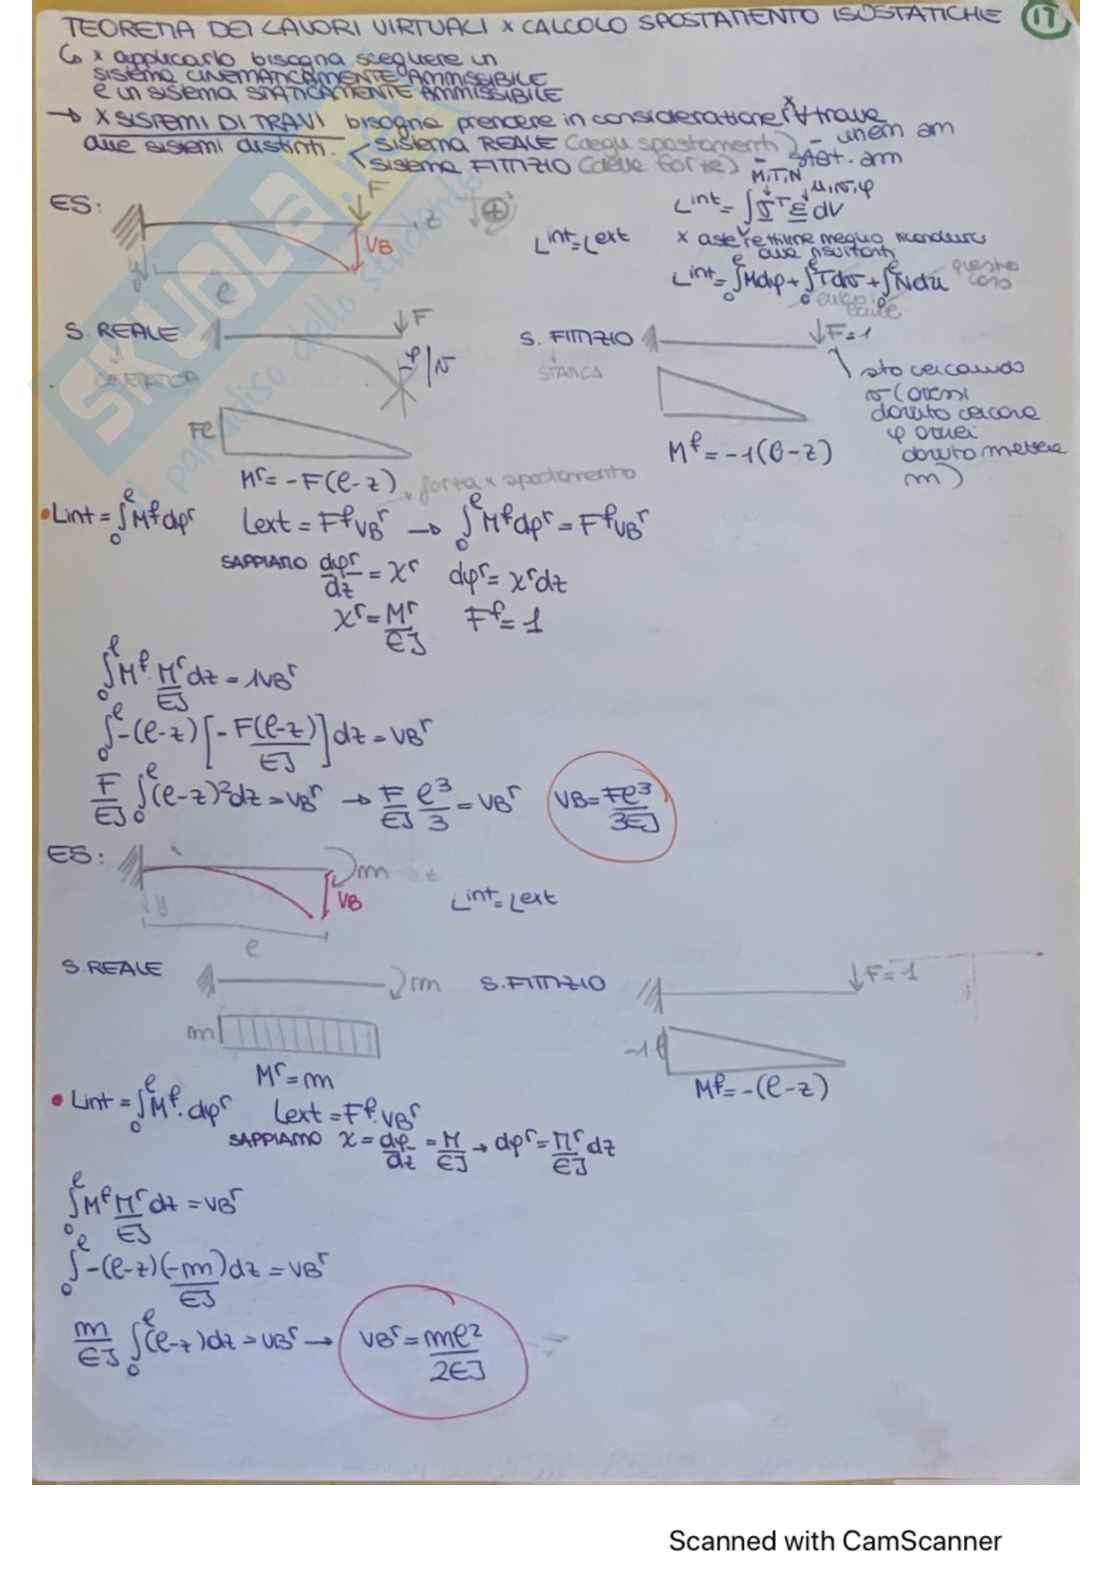 TEOREMA DEI LAVORI VIRTUALI × CALCOLO SPOSTAMENTO ISOSTATICHE 17
↳ × applicarlo bisogna scegliere un
sistema CINEMATICAMENTE AMMISSIBILE
e un sistema STATICAMENTE AMMISSIBILE
→ × SISTEMI DI TRAVI bisogna prendere in considerazione × ∀ trave
due sistemi distinti. sistema REALE (degli spostamenti) - cinem am
sistema FITTIZIO (delle forze) - stat. am
ES: F z ⊕ VB y l
M,T,N u,v,φ
Lint=Lext
Lint = ∫σᵀε dV
× aste rettilinee meglio ricondursi
alle risultanti
Lint = ∫₀ˡ Mdφ + ∫₀ˡ Tdv + ∫₀ˡ Ndu questo caso
S. REALE F φ/v
S. FITTIZIO F=1
STATICA
sto cercando
v (avessi
dovuto cercare
φ avrei
dovuto mettere
m)
Fl
Mʳ = -F(l-z)
Mᶠ = -1(l-z)
forza × spostamento
• Lint = ∫₀ˡ Mᶠdφʳ Lext = FᶠVBʳ → ∫₀ˡ Mᶠdφʳ = FᶠVBʳ
SAPPIAMO dφʳ/dz = χʳ dφʳ = χʳdz
χʳ = Mʳ/EJ Fᶠ = 1
∫₀ˡ Mᶠ·Mʳ/EJ dz = 1VBʳ
∫₀ˡ -(l-z)[-F(l-z)/EJ]dz = VBʳ
F/EJ ∫₀ˡ (l-z)²dz = VBʳ → F/EJ l³/3 = VBʳ VB = Fl³/3EJ
ES: m z VB y l
Lint=Lext
S.REALE m
S.FITTIZIO F=1
m
-1l
Mʳ = m
Mᶠ = -(l-z)
• Lint = ∫₀ˡ Mᶠ·dφʳ Lext = Fᶠ·VBʳ
SAPPIAMO χ = dφ/dz = M/EJ → dφʳ = Mʳ/EJ dz
∫₀ˡ Mᶠ Mʳ/EJ dz = VBʳ
∫₀ˡ -(l-z)(-m)/EJ dz = VBʳ
m/EJ ∫₀ˡ (l-z)dz = VBʳ → VBʳ = ml²/2EJ
Scanned with CamScanner